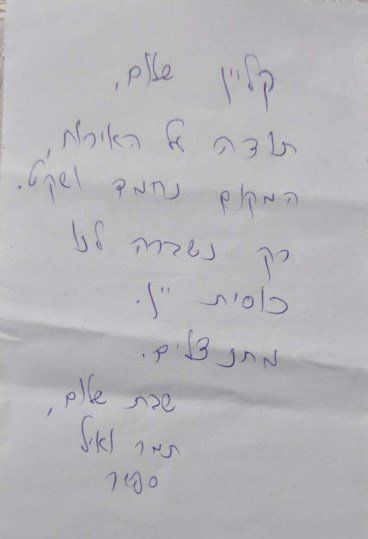 קליין שלום,
תודה על האירוח,
המקום נחמד ושקט.
רק נשברה לנו
כוסית יין.
מתנצלים.
שבת שלום,
תמר ואיל
ספיר